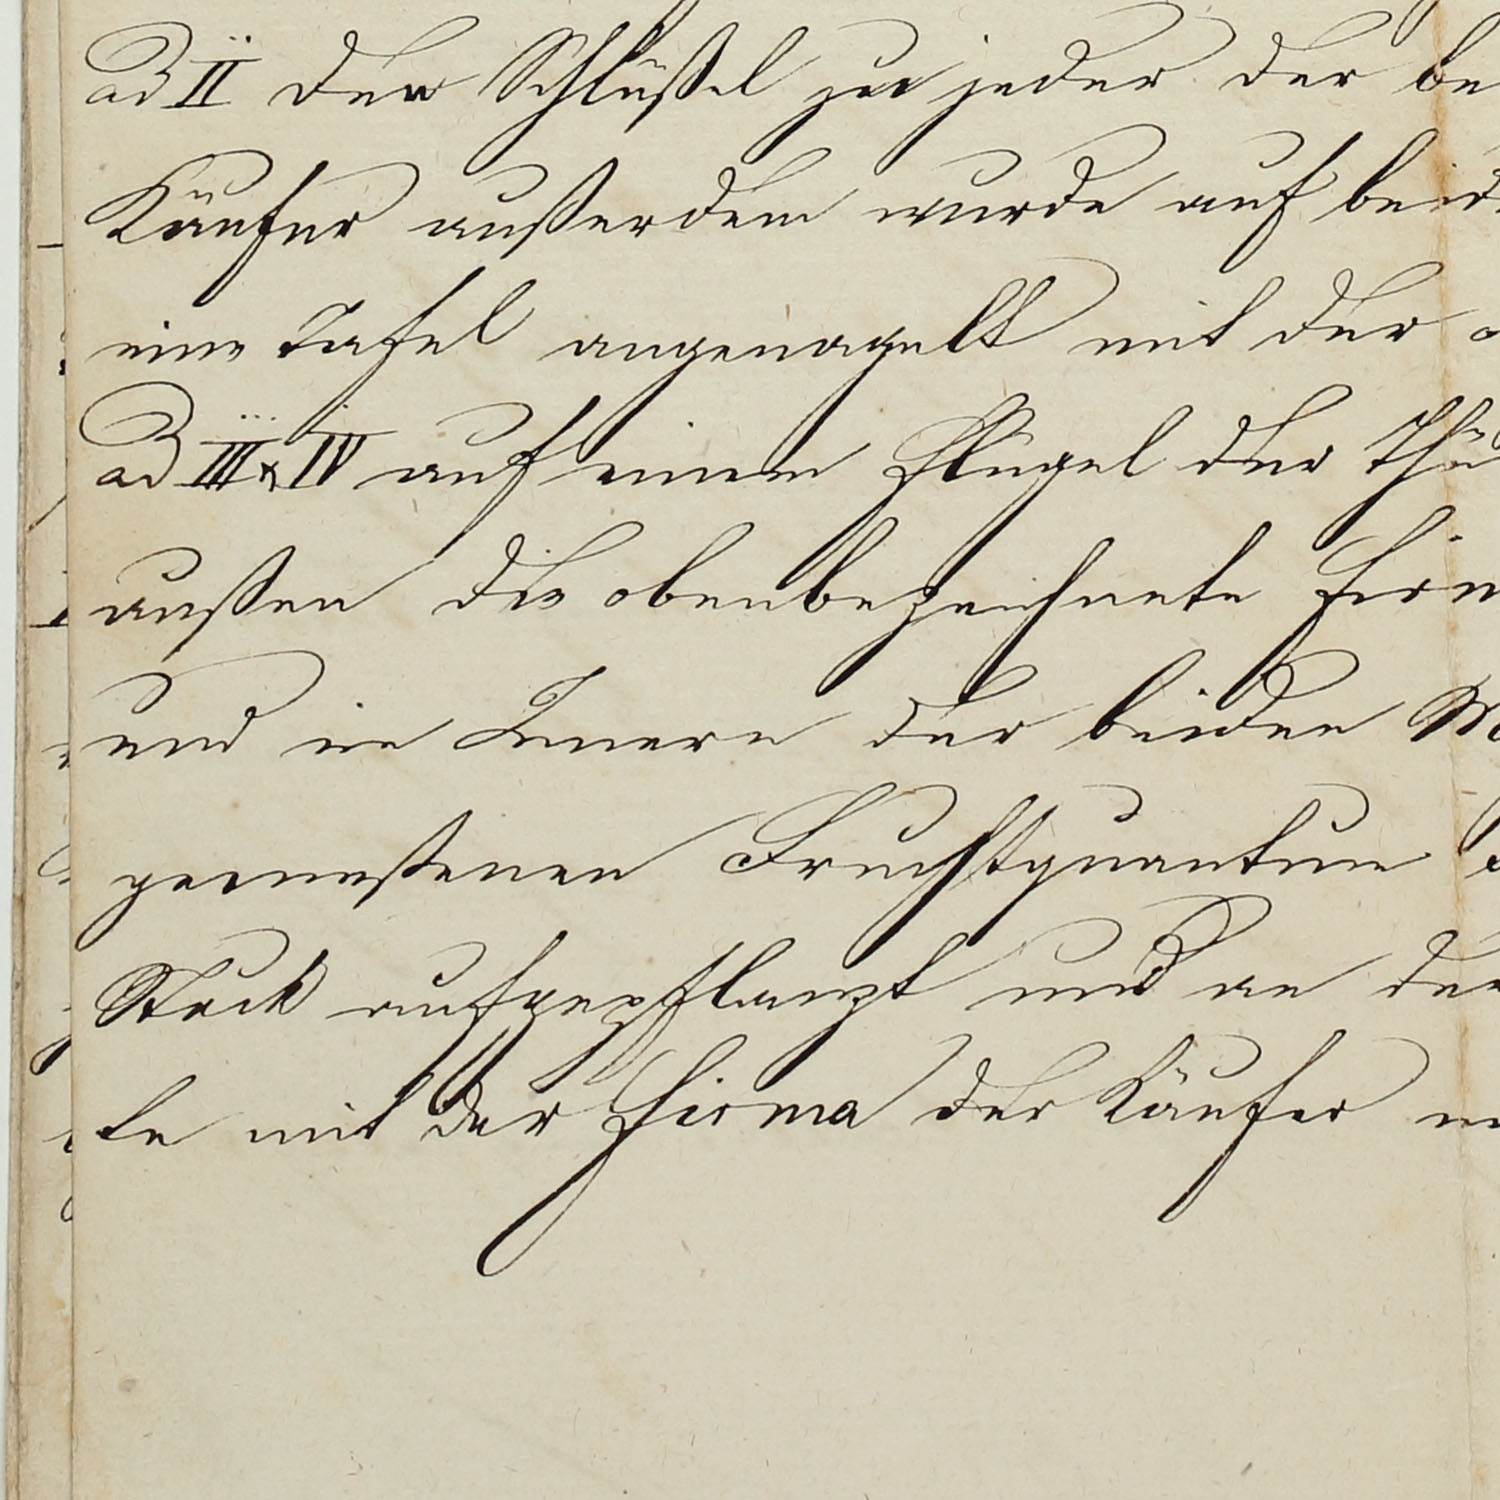 ad II den Schlüßel zu jeder der be
Käufer außerdem wurde auf beid
eine Tafel angenagelt mit der
ad III & IV auf einem Flügel der Thü
außen die obenbezeichnete Firm
und im Innern der beiden Ma
gemeßenen Fruchtquantum
Stock aufgepflanzt und an den
te mit der Firma der Käufer